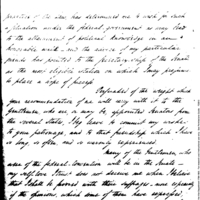 practice of the law has determined me to wish for such
a situation under the federal government as may lead
to the attainment of political knowledge in some
honorable walk and the advice of my particular
friends has pointed to the secretary-ship of the Senate
as the most eligible station in which I may presume
to place a hope of success
Persuaded of the weight which
your recommendation of me will carry with it to the
gentlemen who are, or may be, appointed Senators from
the several states, I beg leave to commit my wishes
to your patronage, and to that friendship which I have
so long, so often, and so warmly experienced
Many of the Gentlemen who
were of the federal convention will be in the Senate
my self love does not deceive me when I believe
that I shall be favored with their suffrages
of the opinion, which some of them have expressed